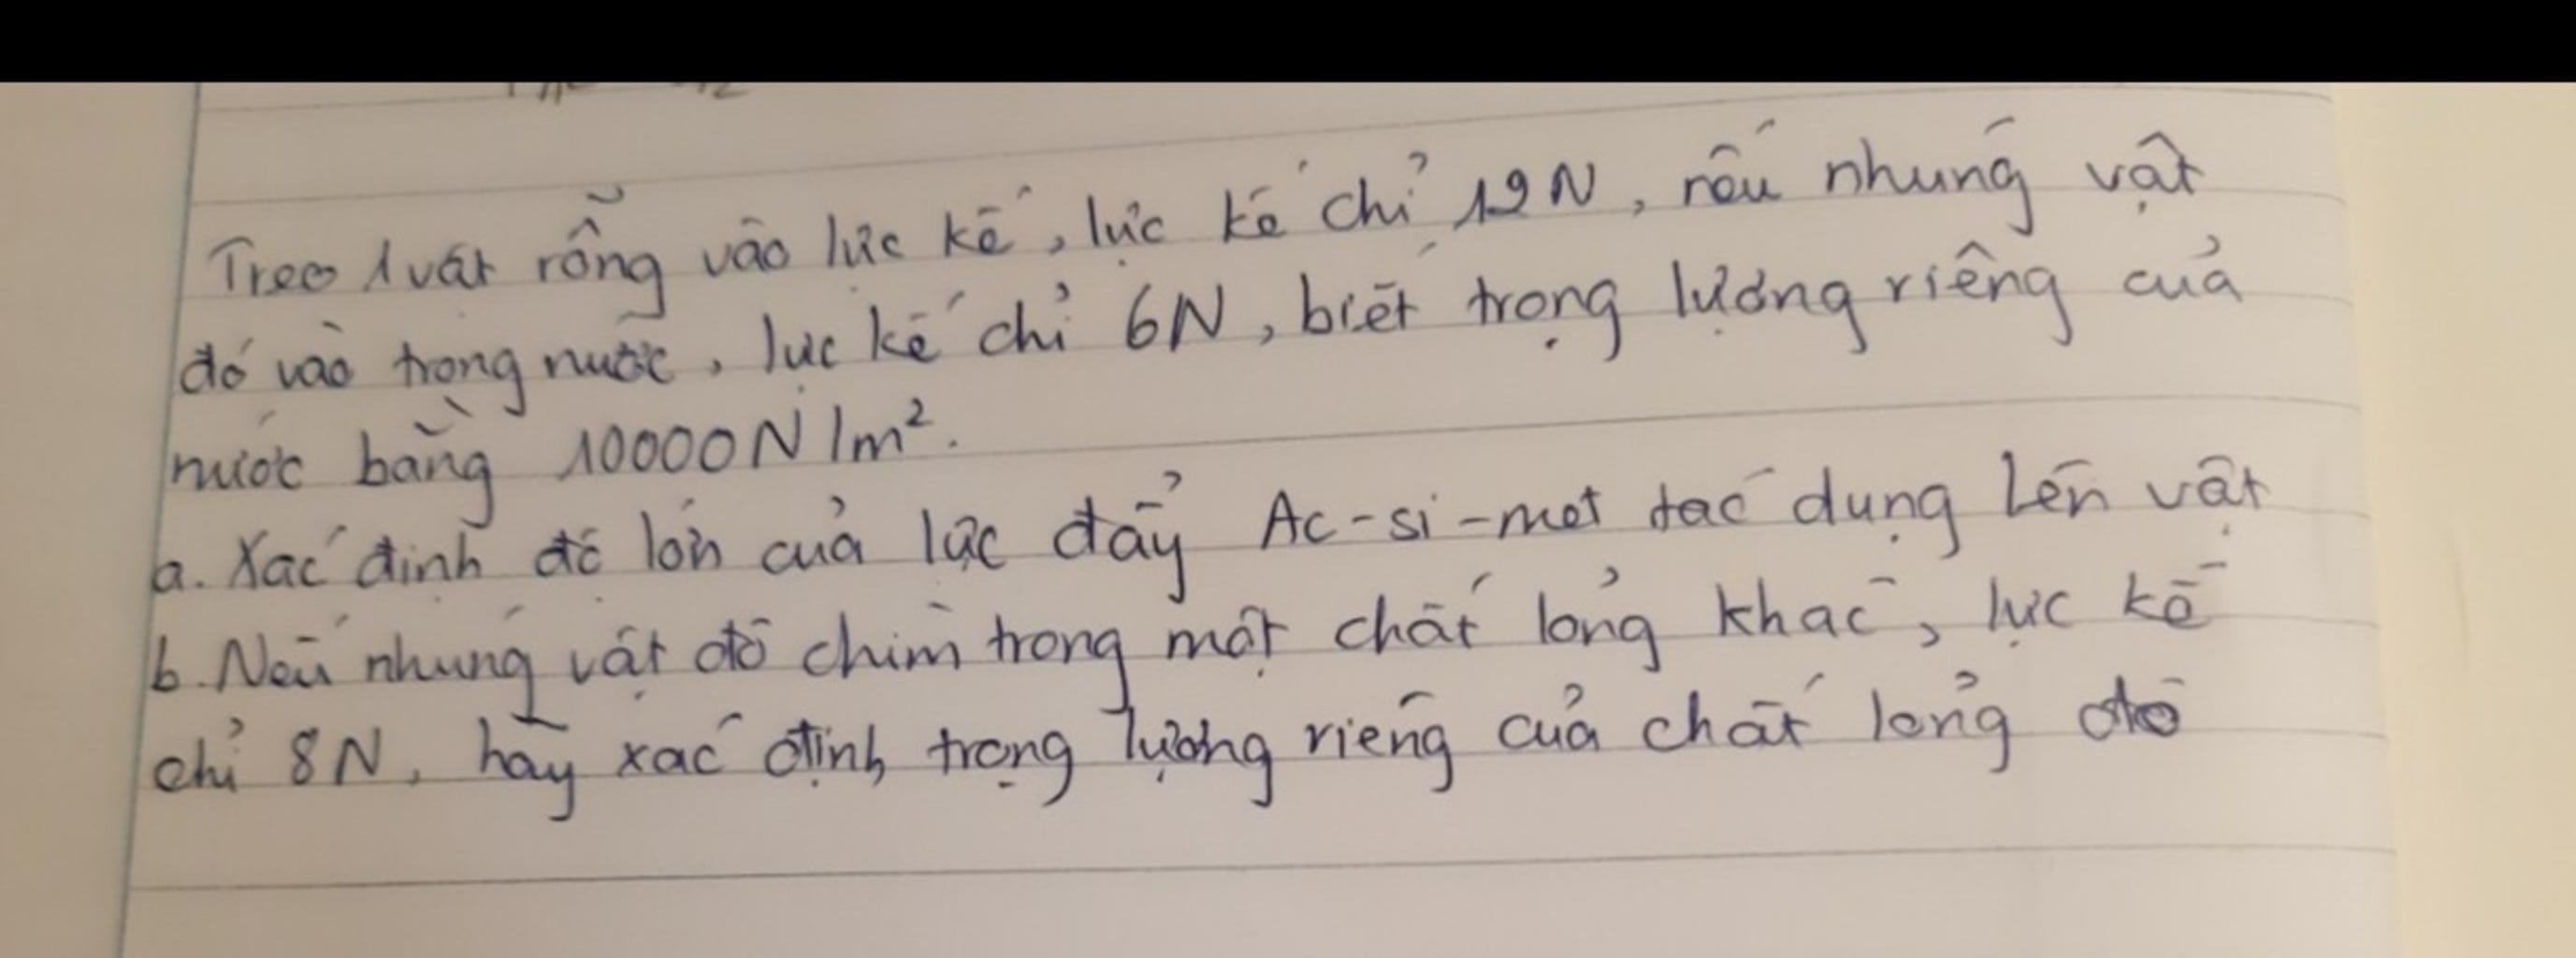 Treo 1 vật rỗng vào lực kế, lực kế chỉ 12N, nếu nhúng vật
đó vào trong nước, lực kế chỉ 6N, biết trọng lượng riêng của
nước bằng 10000N/m².
a. Xác định độ lớn của lực đẩy Ac-si-met tác dụng lên vật
b. Nếu nhúng vật đó chìm trong một chất lỏng khác, lực kế
chỉ 8N, hãy xác định trọng lượng riêng của chất lỏng đó